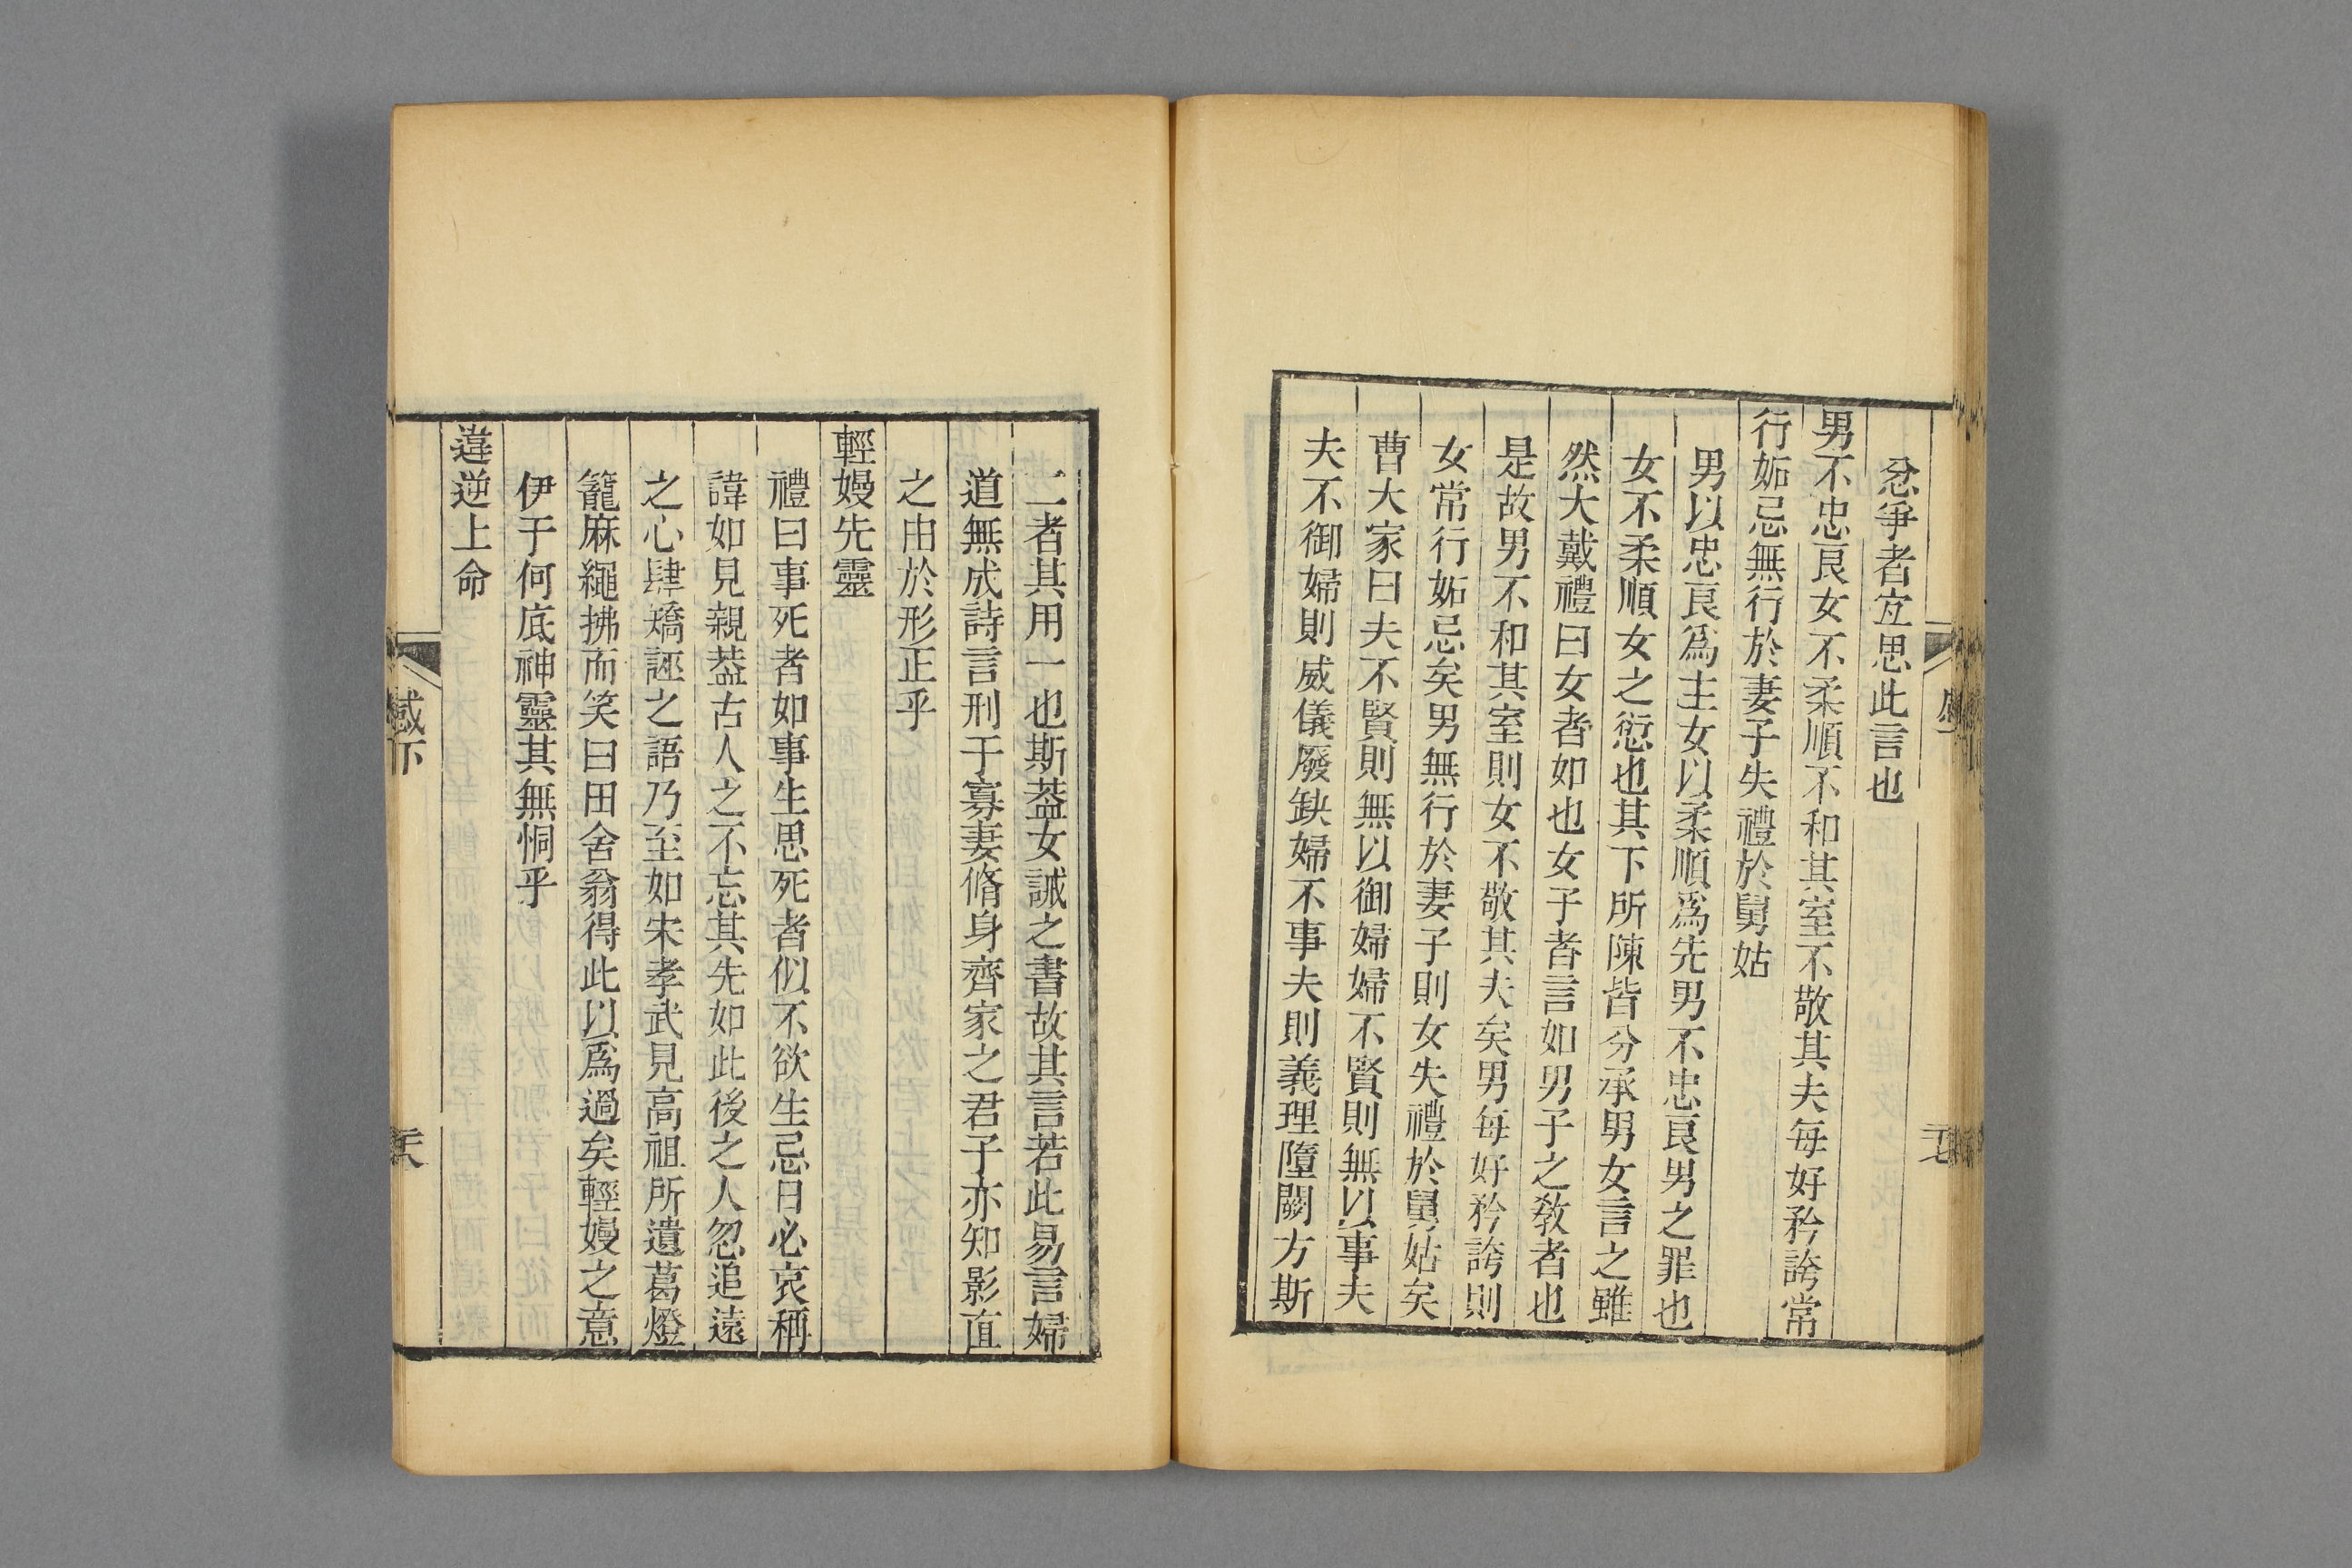 忿爭者宐思此言也
男不忠良女不柔順不和其室不敬其夫每好矜誇常
行妬忌無行於妻子失禮於舅姑
男以忠良爲主女以柔順爲先男不忠良男之罪也
女不柔順女之愆也其下所陳皆分承男女言之雖
然大戴禮曰女者如也女子者言如男子之敎者也
是故男不和其室則女不敬其夫矣男每好矜誇則
女常行妬忌矣男無行於妻子則女失禮於舅姑矣
曹大家曰夫不賢則無以御婦婦不賢則無以事夫
夫不御婦則威儀廢缺婦不事夫則義理墮闕方斯
二者其用一也斯葢女誡之書故其言若此易言婦
道無成詩言刑于寡妻脩身齊家之君子亦知影直
之由於形正乎
輕嫚先靈
禮曰事死者如事生思死者似不欲生忌日必哀稱
諱如見親葢古人之不忘其先如此後之人忽追遠
之心肆矯誣之語乃至如宋孝武見高祖所遺葛燈
籠麻繩拂而笑曰田舍翁得此以爲過矣輕嫚之意
伊于何底神靈其無恫乎
違逆上命
感下